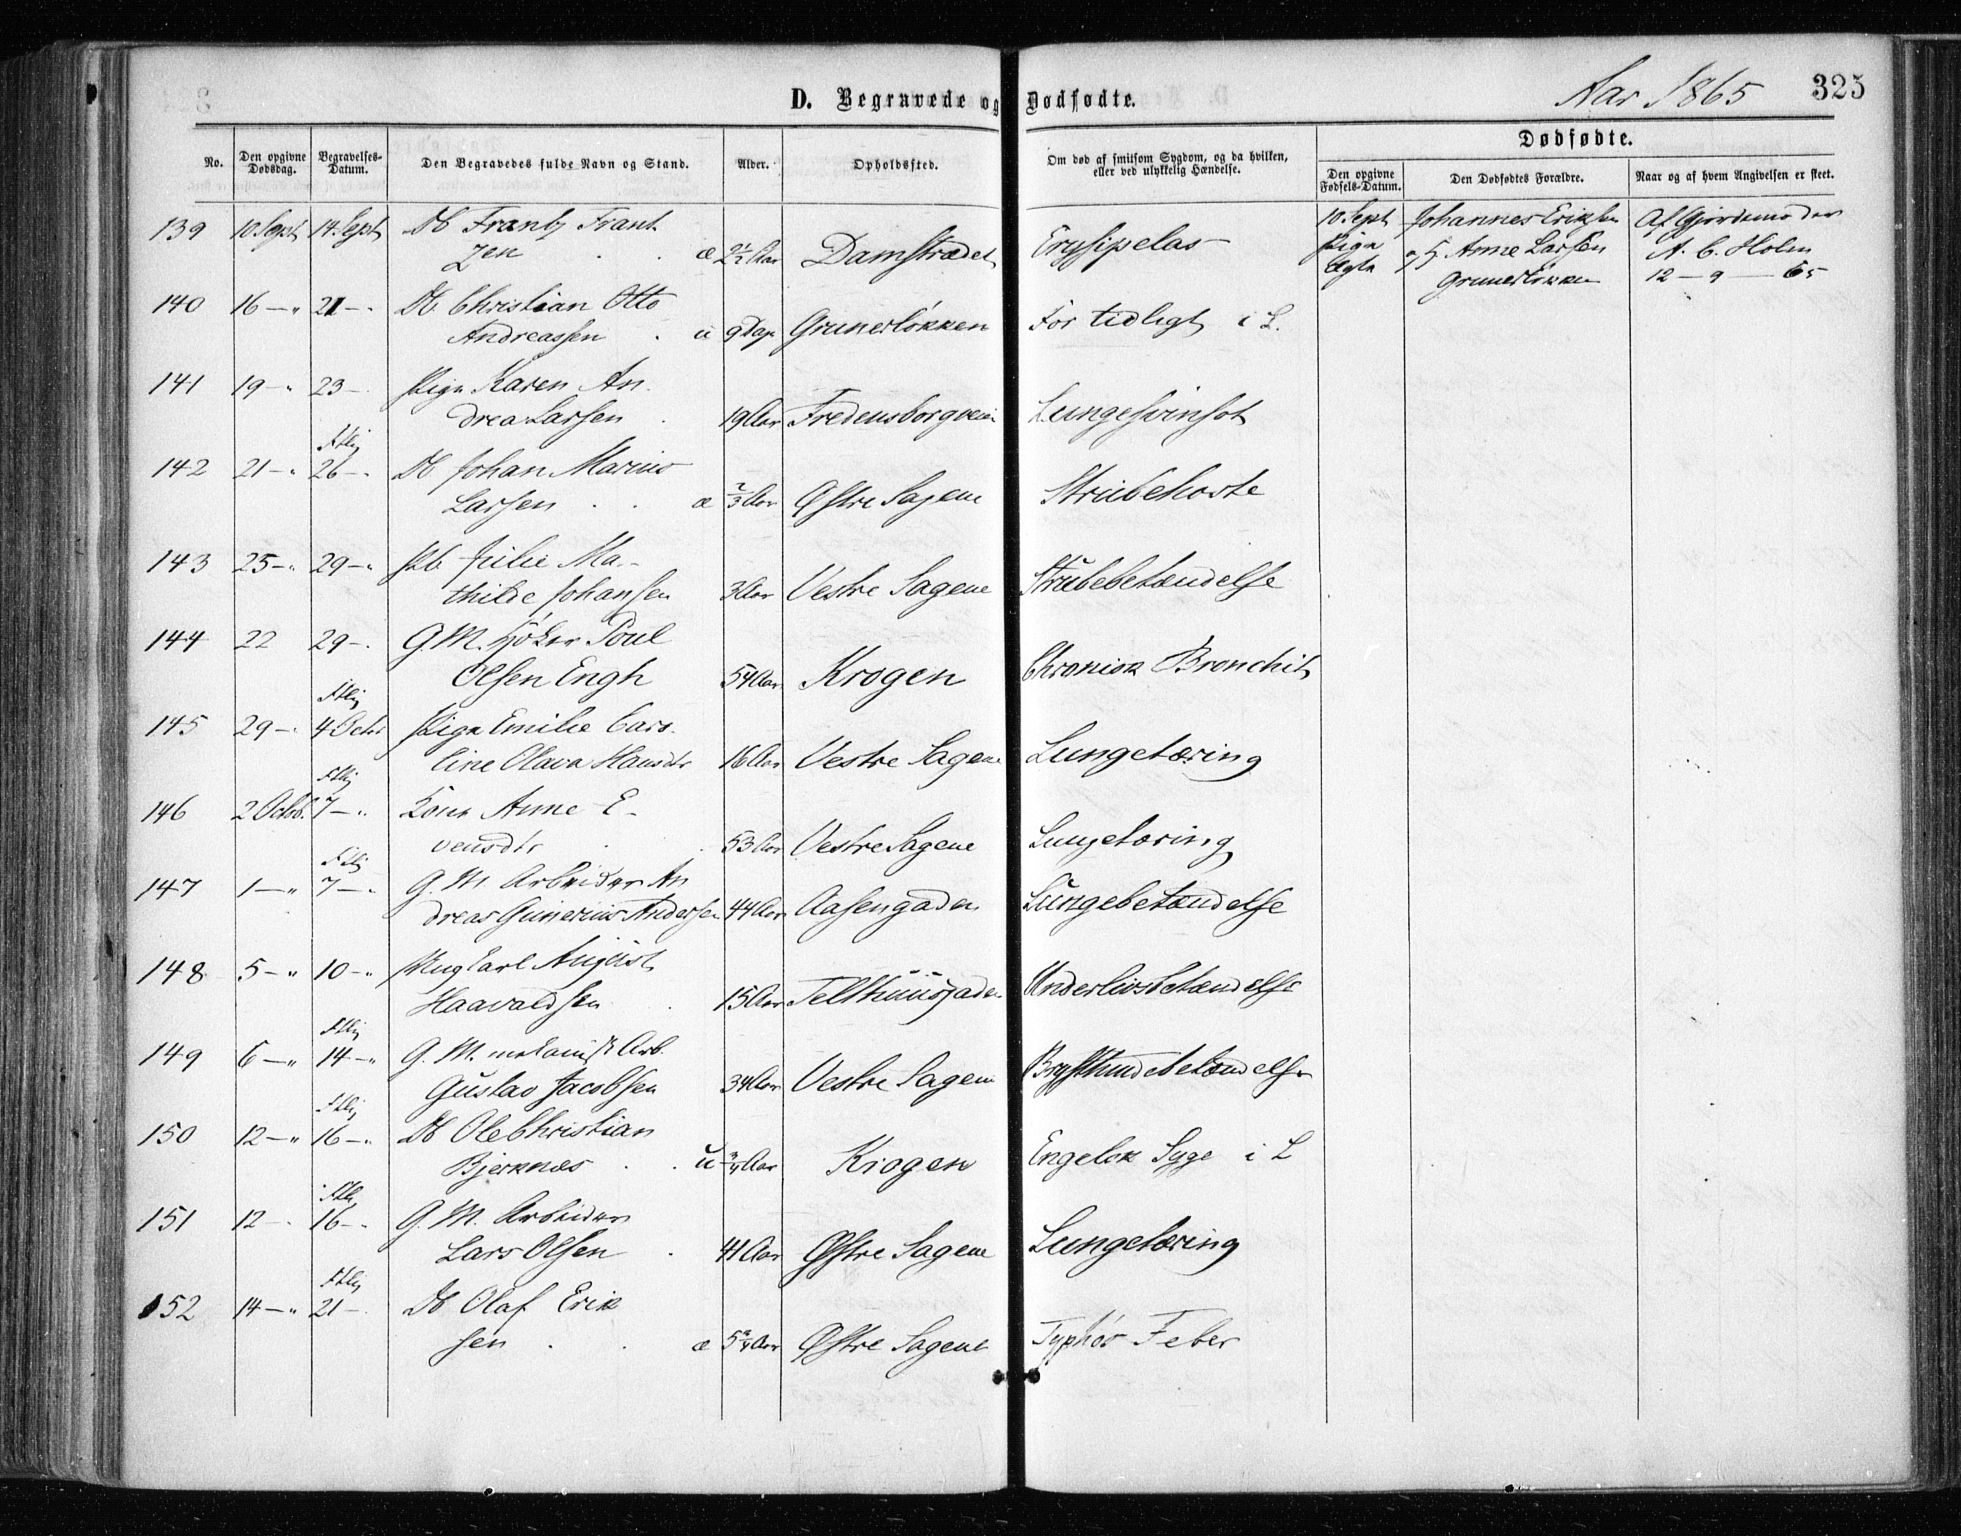 Aar 1865 325
D. Begravede og Dødfødte.
No. Den opgivne Dødsdag. Begravelses-Datum. Den Begravedes fulde Navn og Stand. Alder. Opholdssted. Om død af smitsom Sygdom, og da hvilken, eller ved ulykkelig Hændelse.
Dødfødte.
Den opgivne Fødsels-Datum. Den Dødfødtes Forældre. Naar og af hvem Angivelsen er skeet.
139 10 Sept 14 Sept Db Frantz Frant
zen æ Aar Damstrædet Erysipelas
10 Sept Johannes Eriksen Af Gjordemoder
Pige og H. Anne Larsen A. C. Holm
ægte Grunerløkken 12 - 9 - 65
140 16 - " 21 - . Db Christian Otto
Andreassen . u 9 Dage Grunerløkken For tidligt i L.
141 19 - " 23 - Pige Karen An
drea Larsen . 19 Aar Fredensborgveien Lungesvinsot
142 21 - " 26 - . Db Johan Marius
Larsen . . æ 2/3 Aar Østre Sagene Strubehoste
143 25 - " 29 - " Pb Julie Ma-
thilde Johansen 3 Aar Vestre Sagene Strubebetændelse
144 22 29 - . G. M. Høker Poul
Olsen Engh 54 Aar Krogen Chronisk Bronchit
145 29 - . 4 Octr Pige Emilie Caro
line Olava Hansdtr 16 Aar Vestre Sagene Lungetæring
146 2 Octob. 7 - " Kone Anne E-
vensdtr . . 53 Aar Vestre Sagene Lungetæring
147 1 - " 7 - . G. M. Arbeider An
dreas Gunerius Andersen 44 Aar Aasengaden Lungebetændelse
148 5 - " 10 - " Ung Carl August
Haavaldsen . 15 Aar Telthuusgaden Underlivsbetændelse
149 6 - " 14 - " G. M. mekanisk Arb.
Gustav Jacobsen 34 Aar Vestre Sagene Brysthindebetændelse
150 12 - " 16 - " Db Ole Christian
Bjerknæs . . u Aar Krogen Engelsk Syge i L
151 12 - 16 - . G. M. Arbeider
Lars Olsen . 41 Aar Østre Sagene Lungetæring
152 14 - " 21 - . Db Olaf Erik
sen . . æ Aar Østre Sagene Typhøs Feber